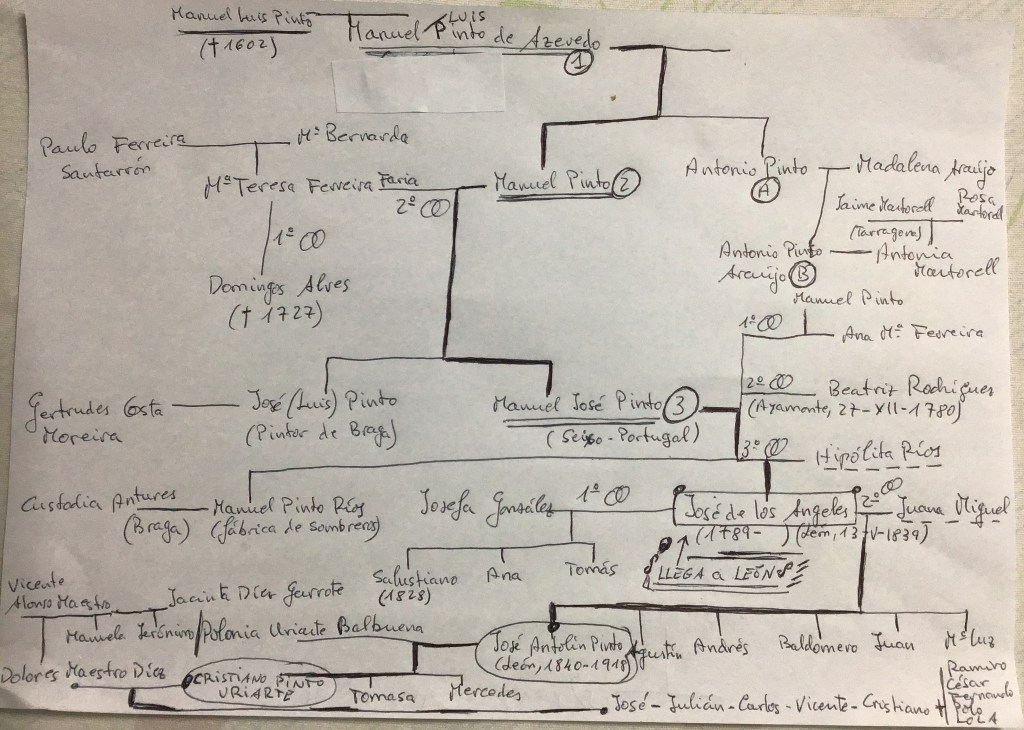 Manuel Luis Pinto
(† 1602)
LUIS
Manuel Pinto de Azevedo
1
Paulo Ferreira
Santarrón
Mª Bernarda
Mª Teresa Ferreira Faria
2º
Manuel Pinto 2
Antonio Pinto
A
Madalena Araújo
Jaime Martorell
(Tarragona)
Rosa
Martorell
1º
Domingos Alves
(† 1727)
Antonio Pinto
Araujo B
Antonia
Martorell
Manuel Pinto
1º
Ana Mª Ferreira
2º
Beatriz Rodríguez
(Ayamonte, 27-XII-1780)
Gertrudes Costa
Moreira
José (Luis) Pinto
(Pintor de Braga)
Manuel José Pinto 3
(Seixo-Portugal)
3º
Hipólita Ríos
Custodia Antures
(Braga)
Manuel Pinto Ríos
(fábrica de sombreros)
Josefa González
1º
José de los Angeles
(1789- ) (León, 13-V-1839)
2º
Juana Miguel
LLEGA a LEÓN
Salustiano
(1828)
Ana
Tomás
Vicente
Alonso Maestro
Manuela
Jerónimo
Jacinta Díez Garrote
Polonia Uriarte Balbuena
José Antolín Pinto
(León, 1840-1918)
Agustín
Andrés
Baldomero
Juan
Mª Luz
Dolores Maestro Díez
CRISTIANO PINTO
URIARTE
Tomasa
Mercedes
José - Julián - Carlos - Vicente - Cristiano +
Ramiro
César
Fernando
Polo
LOLA